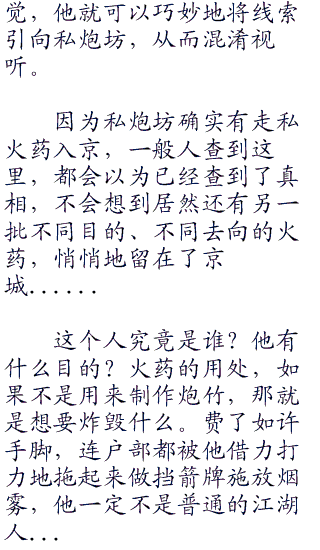 觉，他就可以巧妙地将线索
引向私炮坊，从而混淆视
听。
因为私炮坊确实有走私
火药入京，一般人查到这
里，都会以为已经查到了真
相，不会想到居然还有另一
批不同目的、不同去向的火
药，悄悄地留在了京
城......
这个人究竟是谁？他有
什么目的？火药的用处，如
果不是用来制作炮竹，那就
是想要炸毁什么。费了如许
手脚，连户部都被他借力打
力地拖起来做挡箭牌施放烟
雾，他一定不是普通的江湖
人...